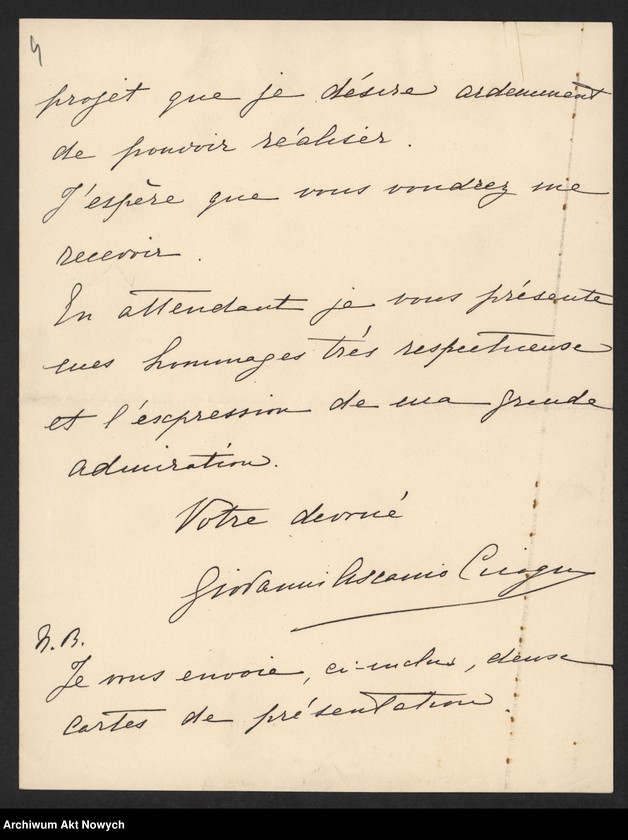 4
projet que je désire ardemment
de pouvoir réaliser.
J'espère que vous voudrez me
recevoir.
En attendant je vous présente
mes hommages très respectueuse
et l'éxpression de ma grande
admiration.
Votre devoué
Giovanni Ascanio
N.B.
Je vous envoie, ci-inclus, deux
cartes de présentation.
Archiwum Akt Nowych